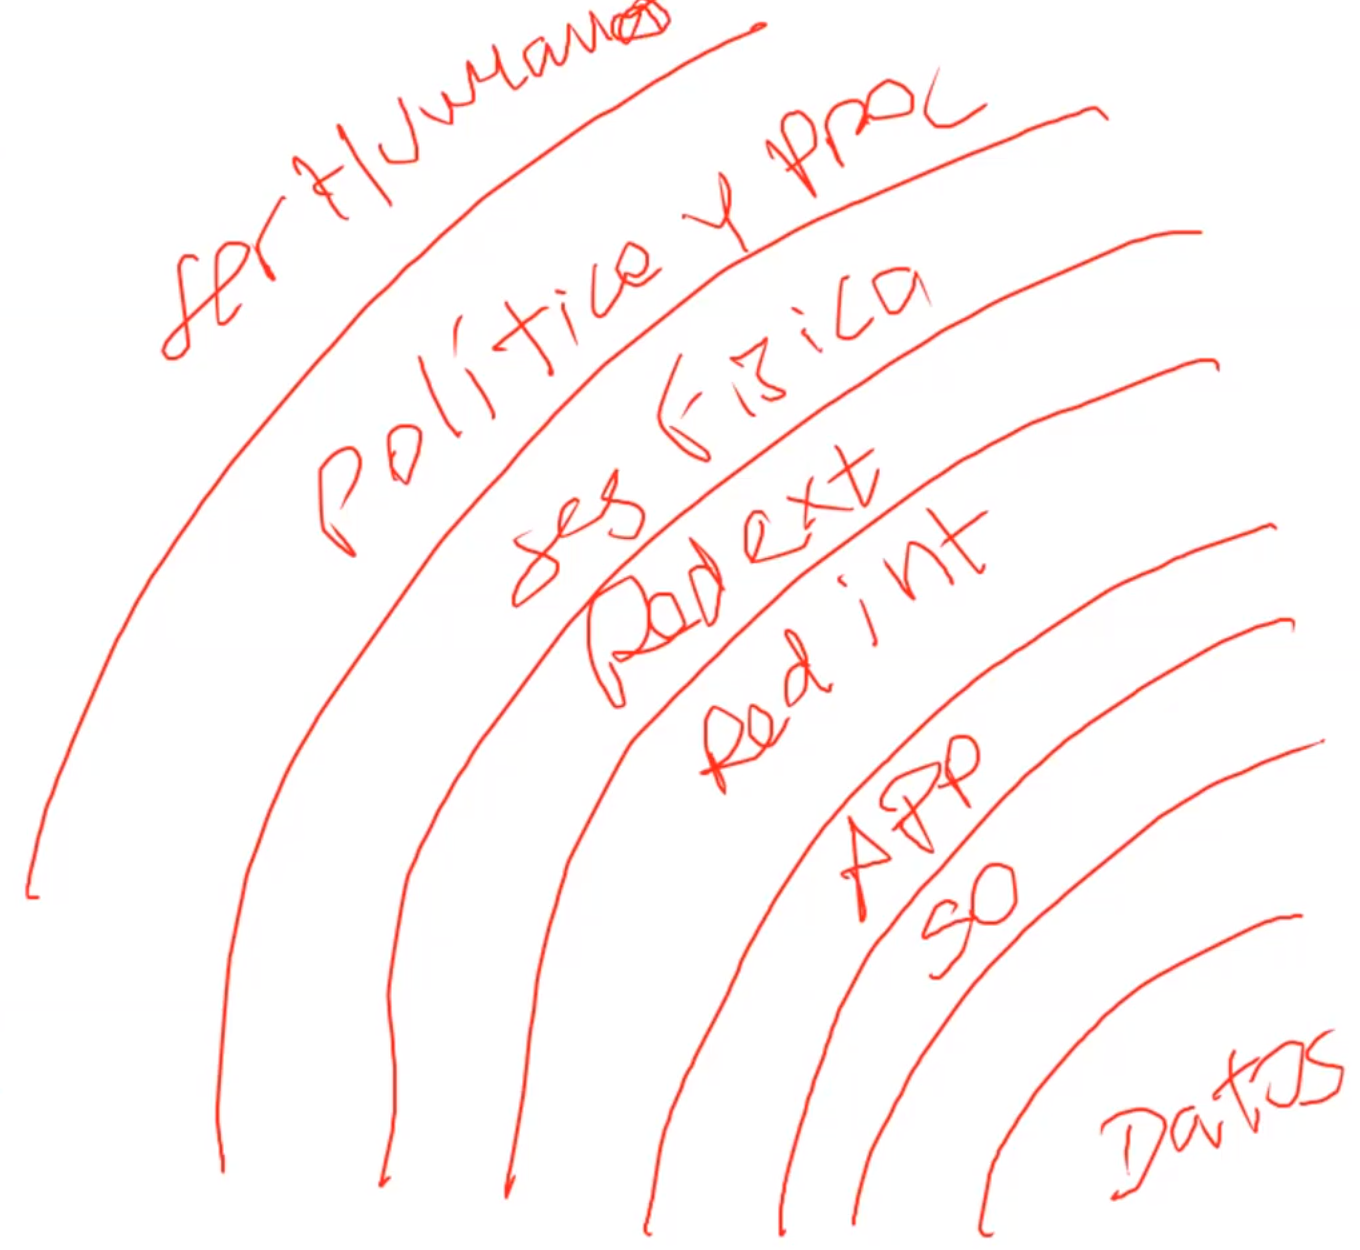 ser Humano
Política y proc
seg Física
Red ext
Red int
APP
SO
Datos